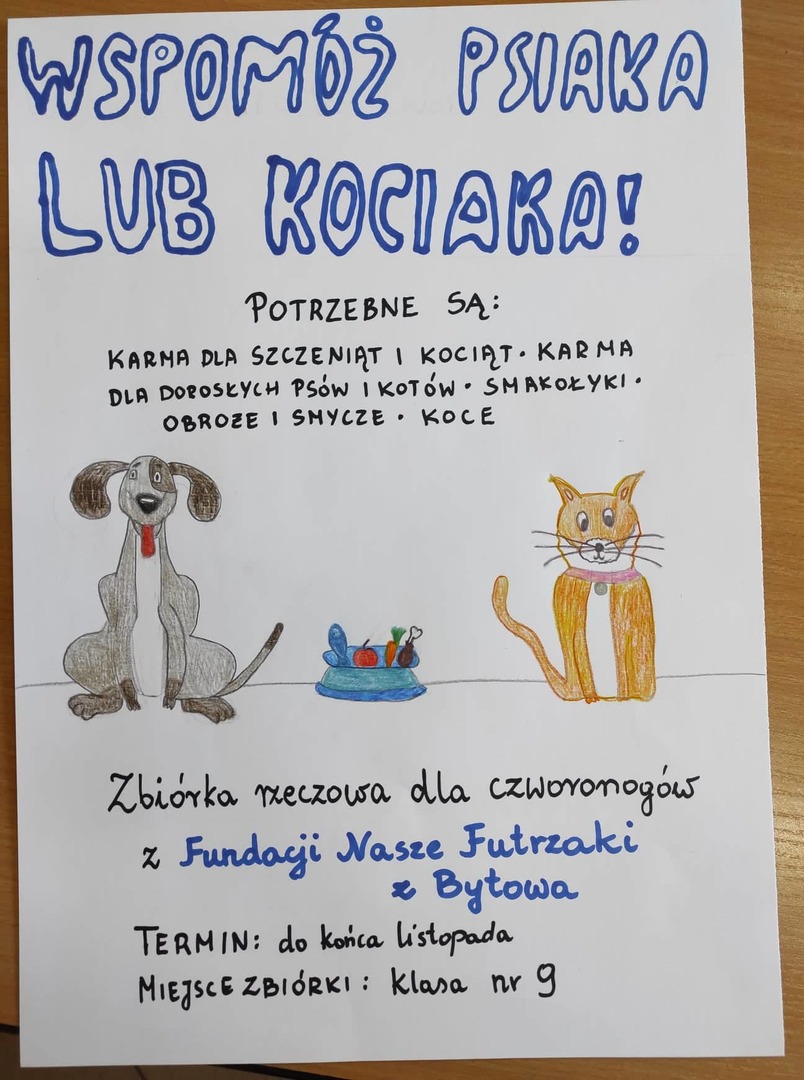 WSPOMÓŻ PSIAKA
LUB KOCIAKA!
POTRZEBNE SĄ:
KARMA DLA SZCZENIĄT I KOCIĄT · KARMA
DLA DOROSŁYCH PSÓW I KOTÓW · SMAKOŁYKI ·
OBROŻE I SMYCZE · KOCE
Zbiórka rzeczowa dla czworonogów
z Fundacji Nasze Futrzaki
z Bytowa
TERMIN: do końca listopada
MIEJSCE ZBIÓRKI: klasa nr 9